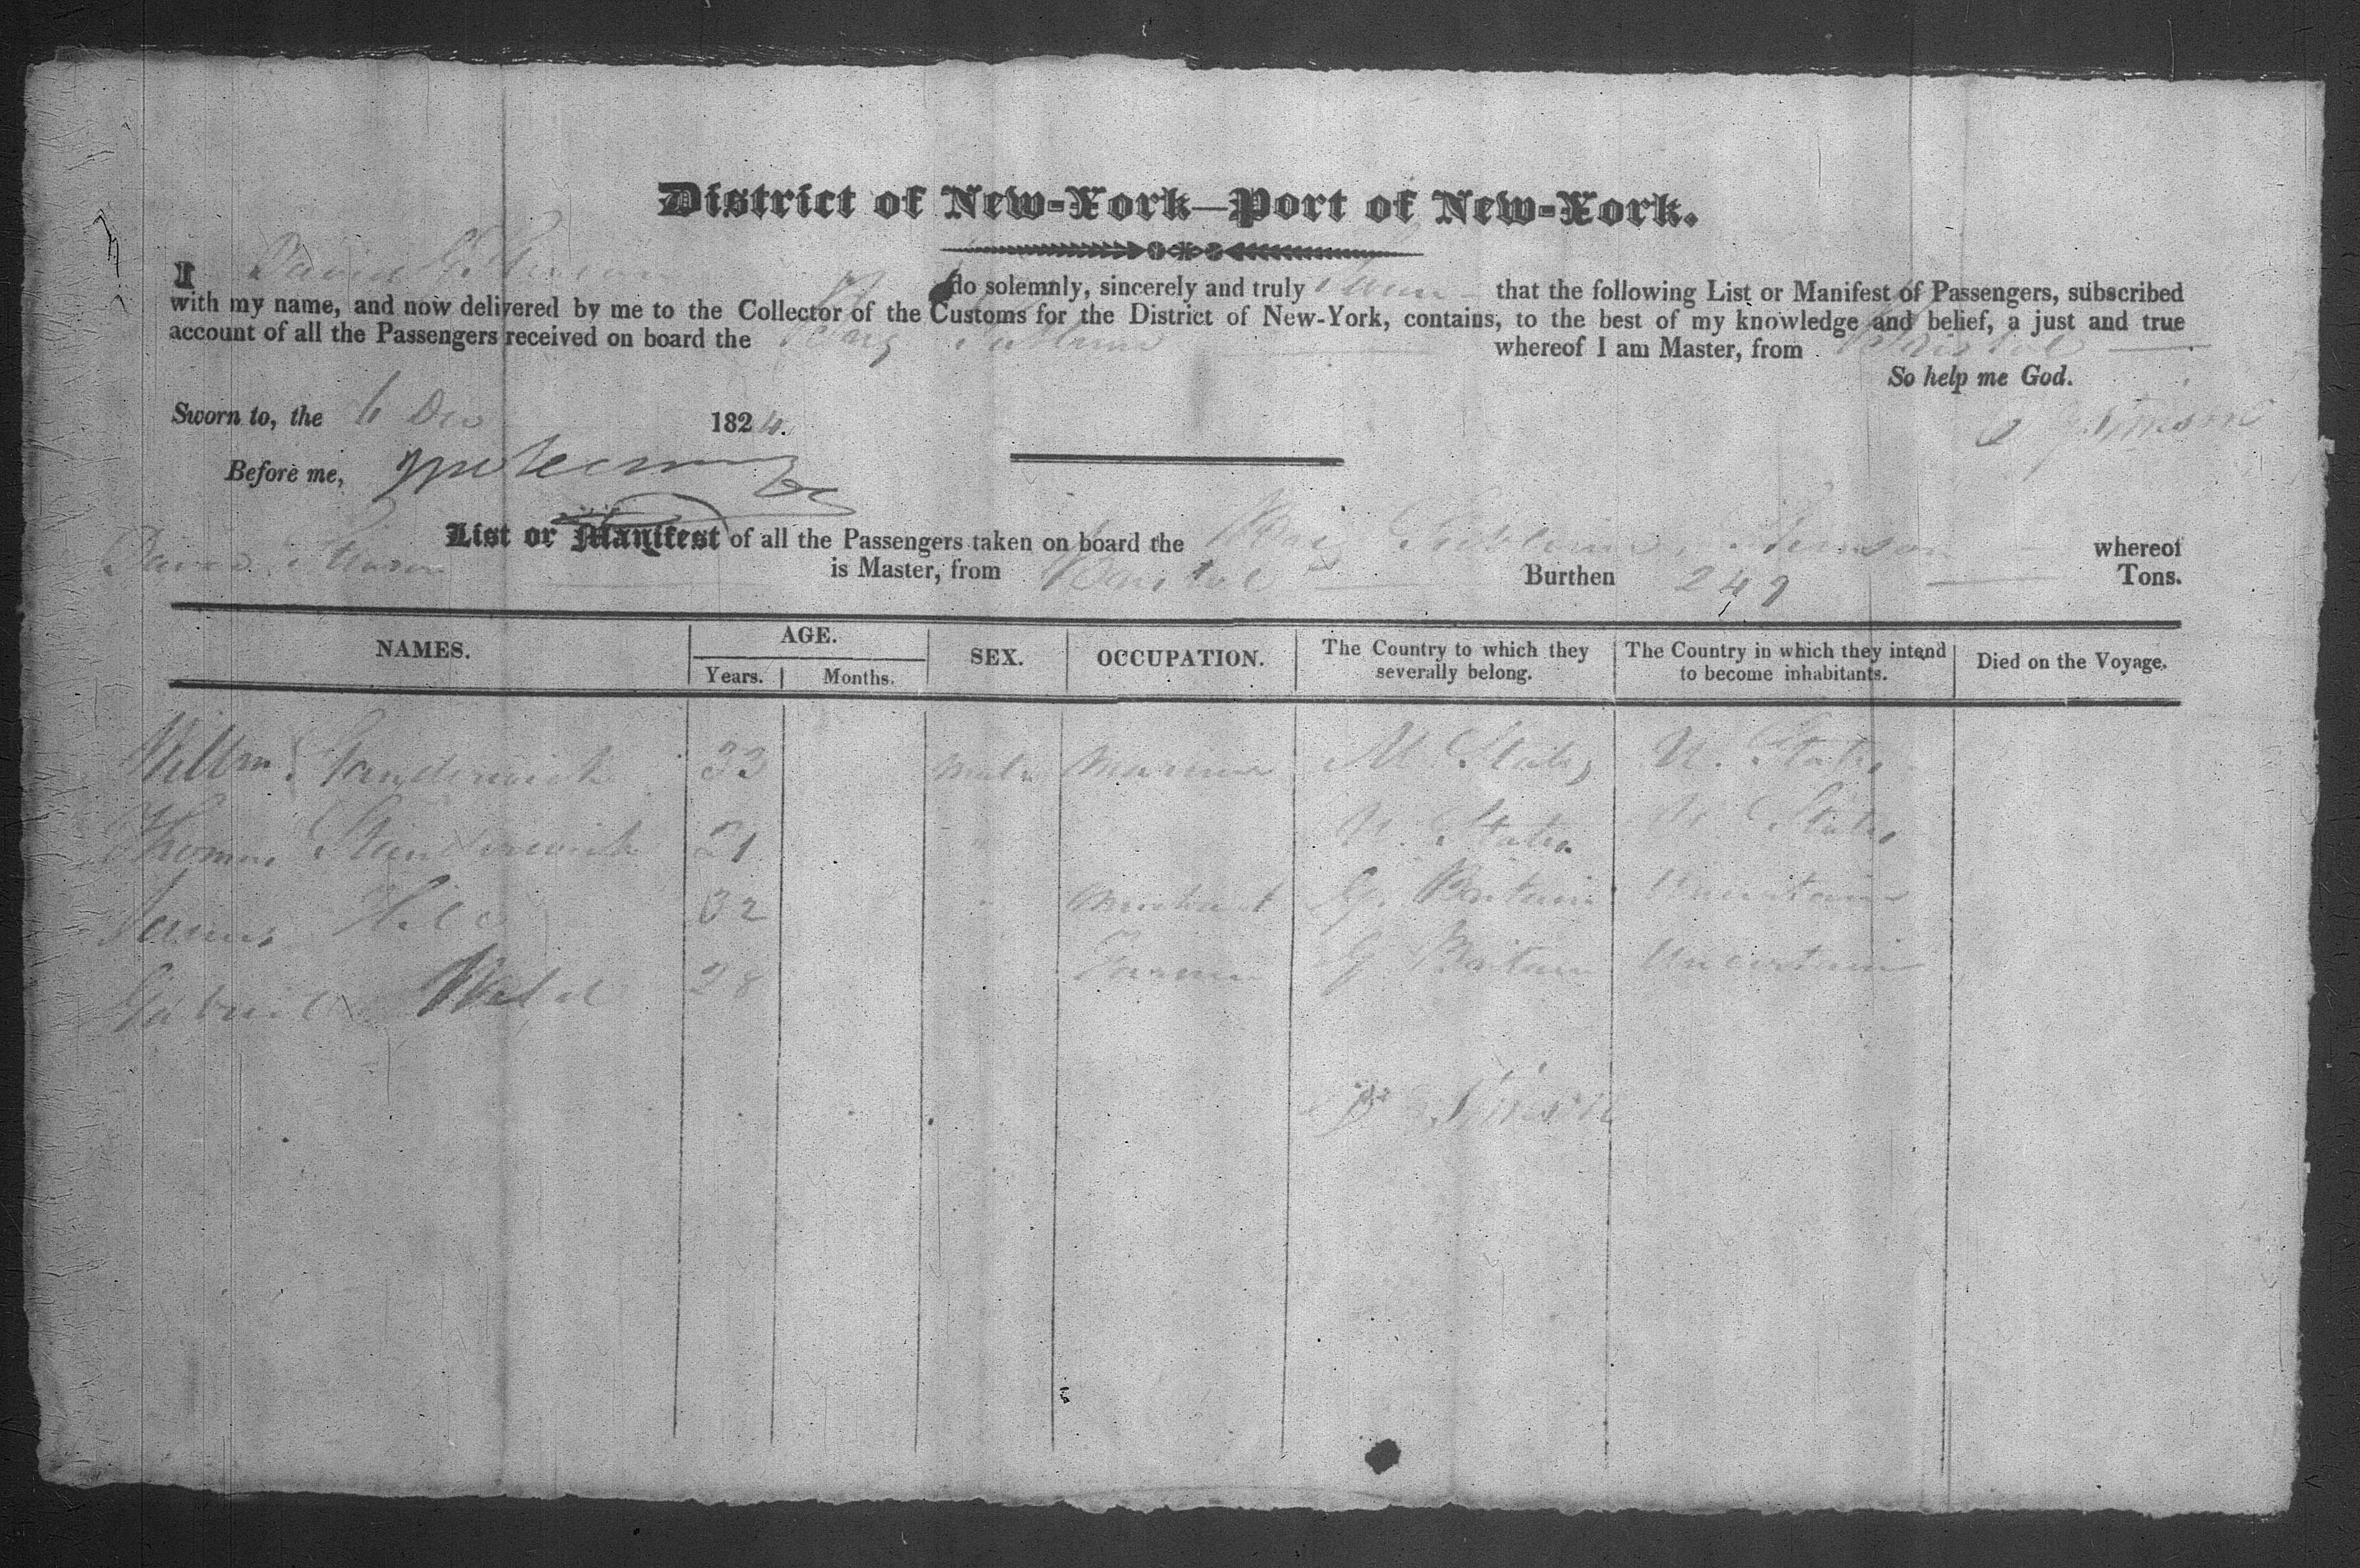 District of New-York—Port of New-York.
I David do solemnly, sincerely and truly that the following List or Manifest of Passengers, subscribed
with my name, and now delivered by me to the Collector of the Customs for the District of New-York, contains, to the best of my knowledge and belief, a just and true
account of all the Passengers received on board the whereof I am Master, from Bristol
So help me God.
Sworn to, the 6 Dec 1824.
Before me,
List or Manifest of all the Passengers taken on board the whereof
David Stinson is Master, from Bristol Burthen 249 Tons.
NAMES. AGE. SEX. OCCUPATION. The Country to which they severally belong. The Country in which they intend to become inhabitants. Died on the Voyage.
Years. Months.
Willm 33 Male Mariner U. States U. States
Thomas Standerwick 21 " U. States U. States
James 32 " Merchant G. Britain Uncertain
Gabriel 28 " Farmer G Britain Uncertain
D Stinson